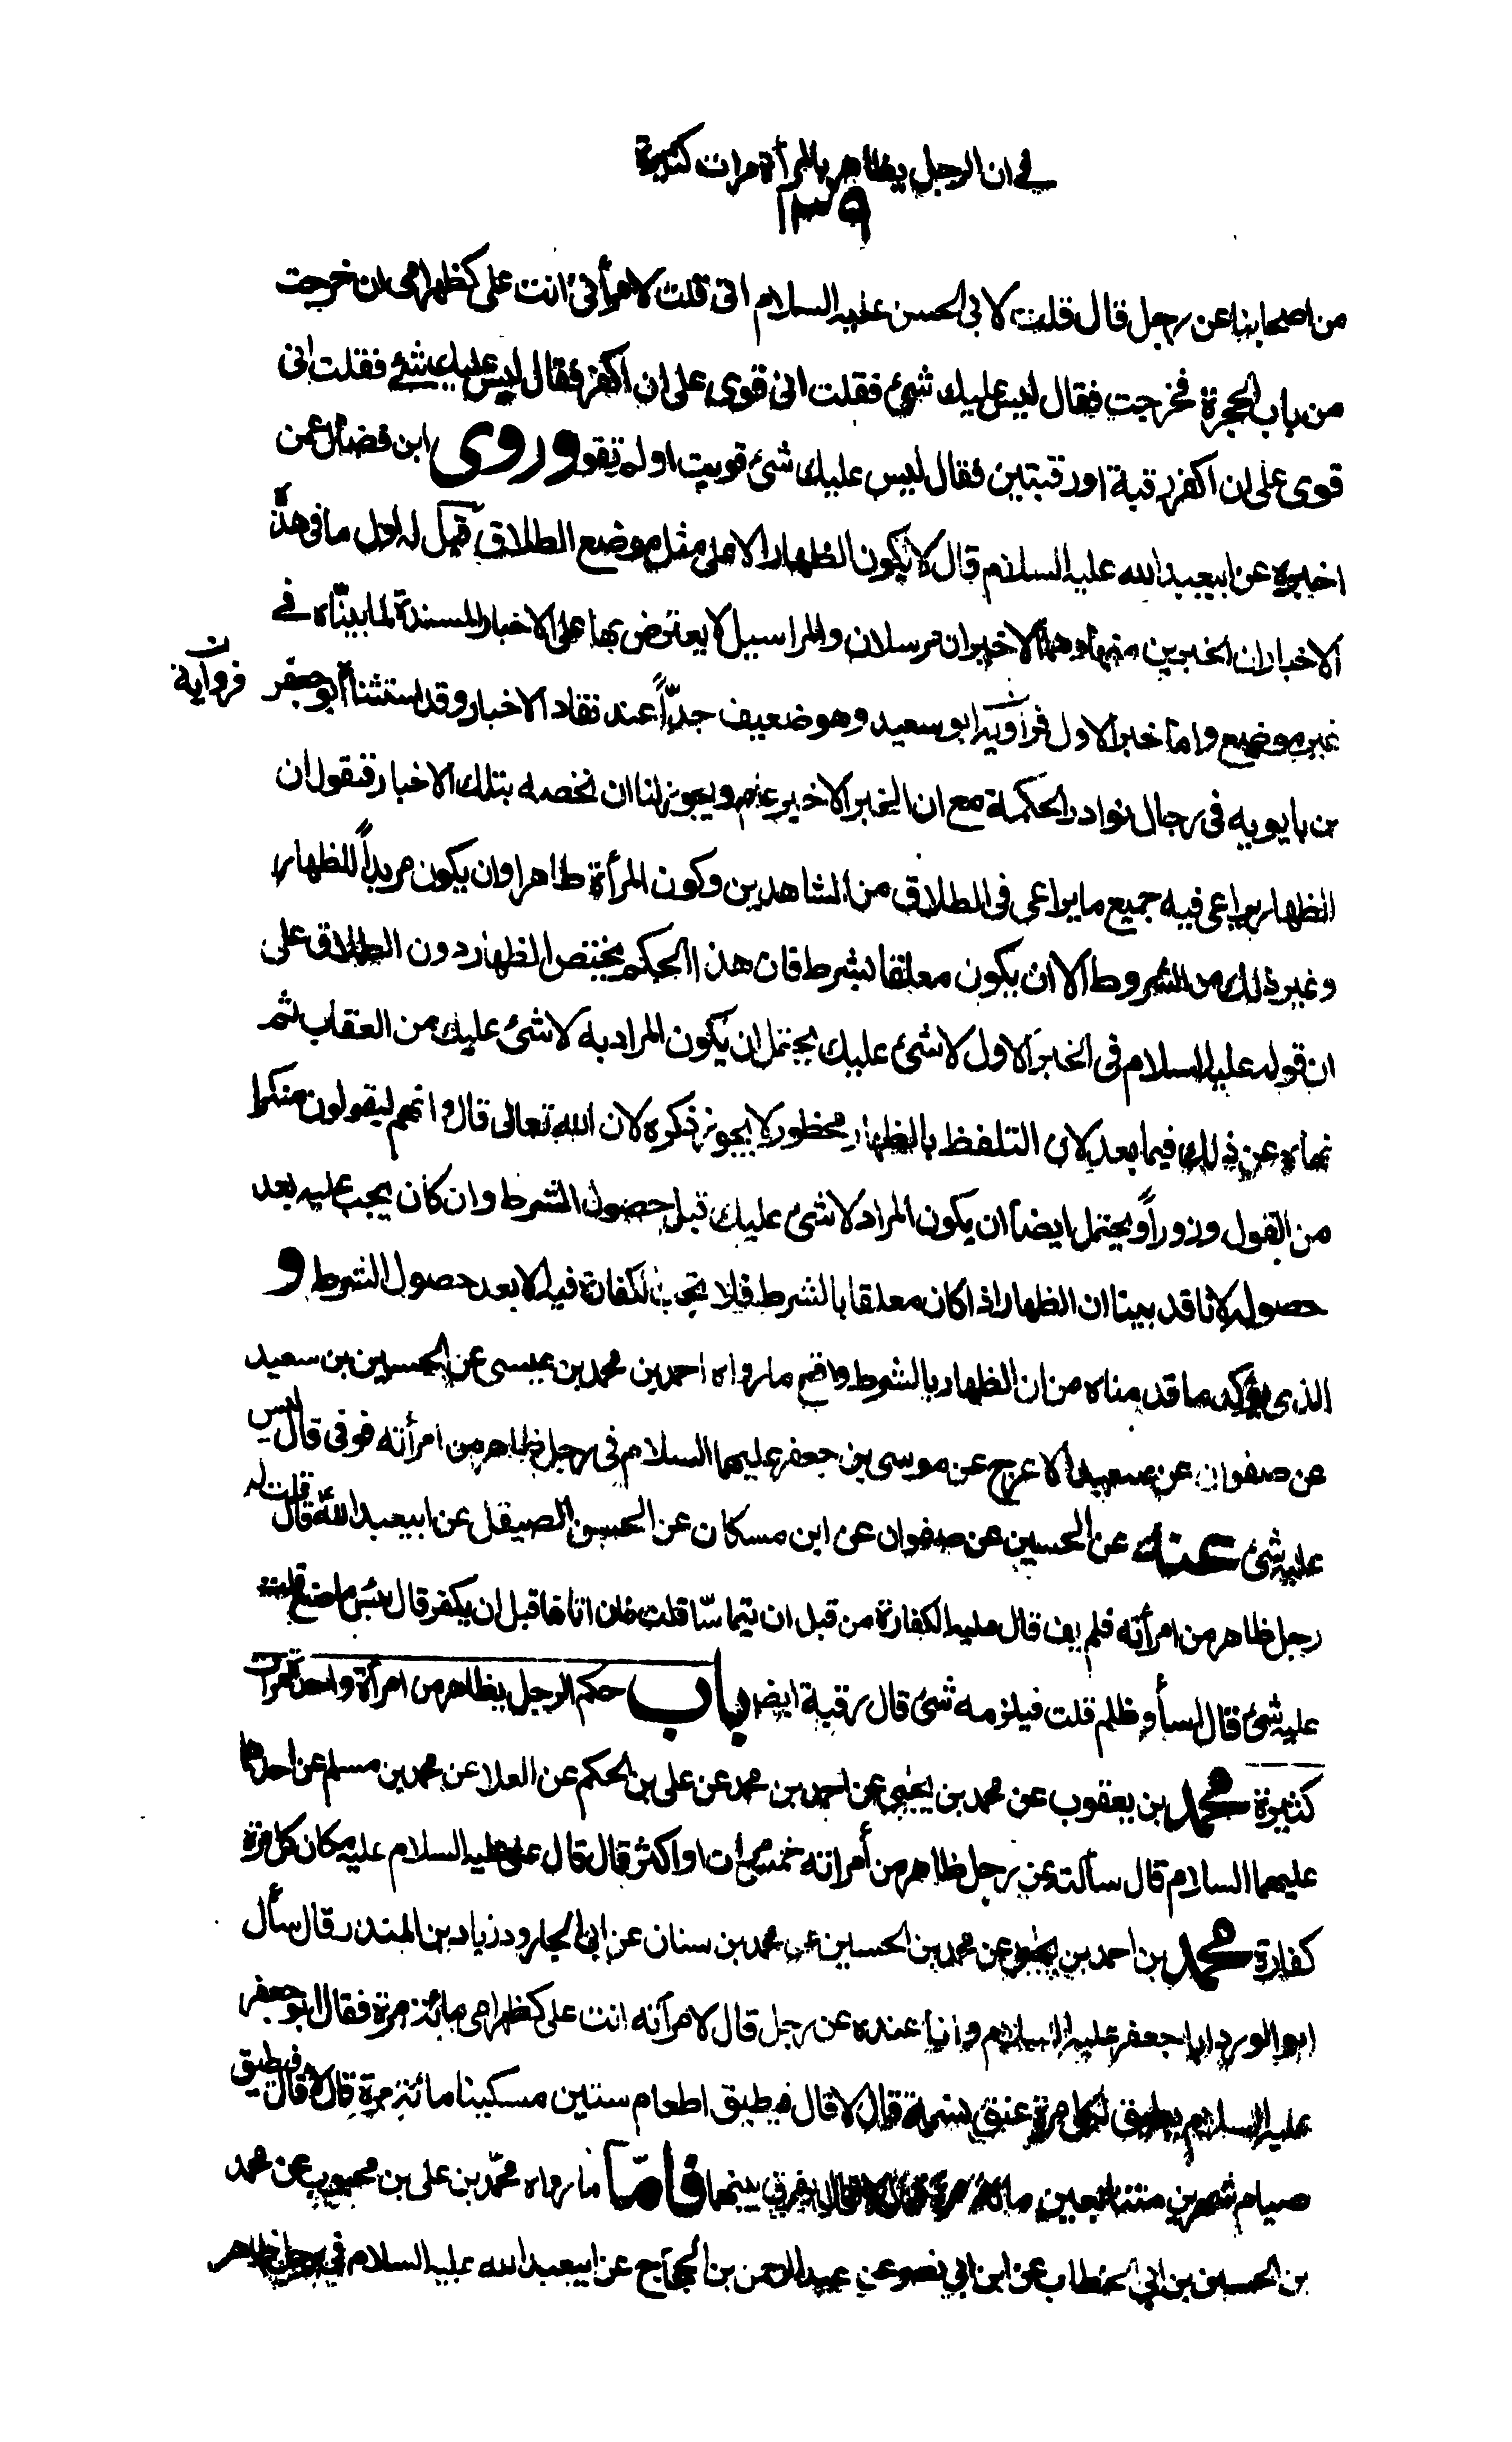 في ان الرجل يظاهر بالمرأة مرات كثيرة
١٣٩
من اصحابنا عن رجل قال قلت لابي الحسن عليه السلام اني قلت لامرأتي انت علي كظهر امي ان خرجت
من باب الحجرة فخرجت فقال ليس عليك شئ فقلت اني قوى على ان اكفر فقال ليس عليك شئ فقلت اني
قوى على ان اكفر رقبة او رقبتين فقال ليس عليك شئ قويت او لم تقو وروى ابن فضال عمن
اخبره عن ابيعبد الله عليه السلام قال لا يكون الظهار الا على مثل موضع الطلاق قيل له اول ما في هذه
الاخبار ان الخبرين منها وهما الاخيران مرسلان والمراسيل لا يعترض بها على الاخبار المسندة لما بيناه في
غير موضع واما خبر الاول فراويه ابو سعيد وهو ضعيف جدّاً عند نقاد الاخبار وقد استثناه ابو جعفر
فروايه
بن بابويه في رجال نوادر الحكمة مع ان الخبر الاخير عام ويجوز لنا ان نخصه بتلك الاخبار فنقول ان
الظهار يراعى فيه جميع ما يراعى في الطلاق من الشاهدين وكون المرأة طاهرا وان يكون مريداً للظهار
وغير ذلك من الشروط الا ان يكون معلقا بشرط فان هذا الحكم يختص الظهار دون الطلاق على
ان قوله عليه السلام في الخبر الاول لا شئ عليك يحتمل ان يكون المراد به لا شئ عليك من العقاب ثم
نهاه عن ذلك فيما بعد لان التلفظ بالظهار محظور لا يجوز ذكره لان الله تعالى قال وانهم ليقولون منكرا
من القول وزوراً ويحتمل ايضا ان يكون المراد لا شئ عليك قبل حصول الشرط وان كان يجب عليه بعد
حصوله لانا قد بينا ان الظهار اذا كان معلقا بالشرط فلا تجب الكفارة فيه الا بعد حصول الشرط و
الذى يؤكد ما قدمناه من ان الظهار بالشرط واقع ما رواه احمد بن محمد بن عيسى عن الحسين بن سعيد
عن صفوان عن سعيد الاعرج عن موسى بن جعفر عليهما السلام في رجل ظاهر من امرأته فوفى قال ليس
عليه شئ عنه عن الحسين عن صفوان عن ابن مسكان عن الحسن الصيقل عن ابيعبد الله قال قلت له
رجل ظاهر من امرأته فلم يف قال عليه الكفارة من قبل ان يتماسّا قلت فان اتاها قبل ان يكفر قال بئس ما صنع قلت
عليه شئ قال اسأ وظلم قلت فيلزمه شئ قال رقبة ايضا باب حكم الرجل يظاهر من امرأة واحدة مرات
كثيرة محمد بن يعقوب عن محمد بن يحيى عن احمد بن محمد عن علي بن الحكم عن العلا عن محمد بن مسلم عن احدهما
عليهما السلام قال سألته عن رجل ظاهر من أمراته خمس مرات او اكثر قال قال علي عليه السلام عليه مكان كل مرة
كفارة محمد بن احمد بن يحيى عن محمد بن الحسين عن محمد بن سنان عن ابي الجارود زياد بن المنذر قال سأل
ابو الورد ابا جعفر عليه السلام وانا عنده عن رجل قال لامرأته انت علي كظهر امي مائة مرة فقال ابو جعفر
عليه السلام يطيق لكل مرة عتق نسمة قال لا قال فيطيق اطعام ستين مسكينا مائة مرة قال لا قال فيطيق
صيام شهرين متتابعين مائة مرة قال لا قال يفرق بينهما فامّا ما رواه محمّد بن علي بن محبوب عن محمد
بن الحسين بن ابي الخطاب عن ابن ابي نصر عن عبد الرحمن بن الحجاج عن ابيعبد الله عليه السلام في رجل ظاهر